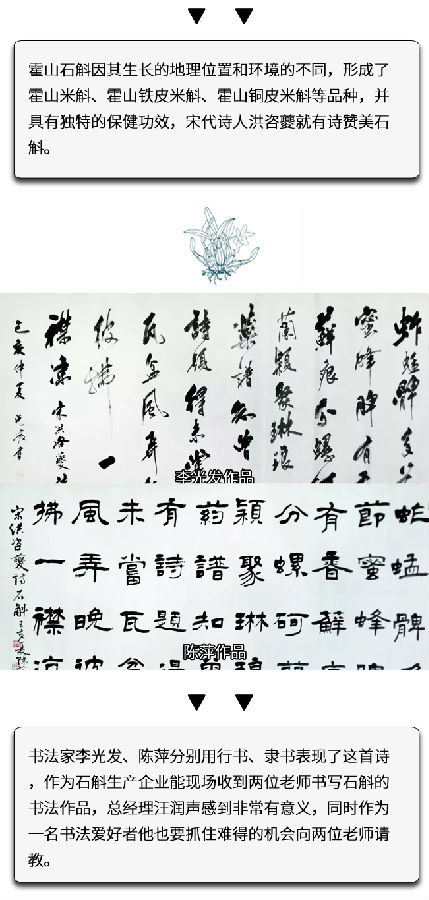 霍山石斛因其生长的地理位置和环境的不同，形成了
霍山米斛、霍山铁皮米斛、霍山铜皮米斛等品种，并
具有独特的保健功效，宋代诗人洪咨夔就有诗赞美石
斛。
蚱蜢髀多
蜜蜂脾有
蘚痕分螺
蘭穎聚琳琅
藥譜知曾
詩題得未嘗
瓦盆風弄
披拂一
襟凉 宋洪咨夔
己亥仲夏
李光发作品
蚱蜢髀
節蜜蜂脾
有香蘚痕
分螺砢蘭
穎聚琳琅
葯譜知曾
有詩題得
未嘗瓦盆
風弄晚披
拂一襟凉
宋洪咨夔詩石斛
陈萍作品
书法家李光发、陈萍分别用行书、隶书表现了这首诗
，作为石斛生产企业能现场收到两位老师书写石斛的
书法作品，总经理汪润声感到非常有意义，同时作为
一名书法爱好者他也要抓住难得的机会向两位老师请
教。